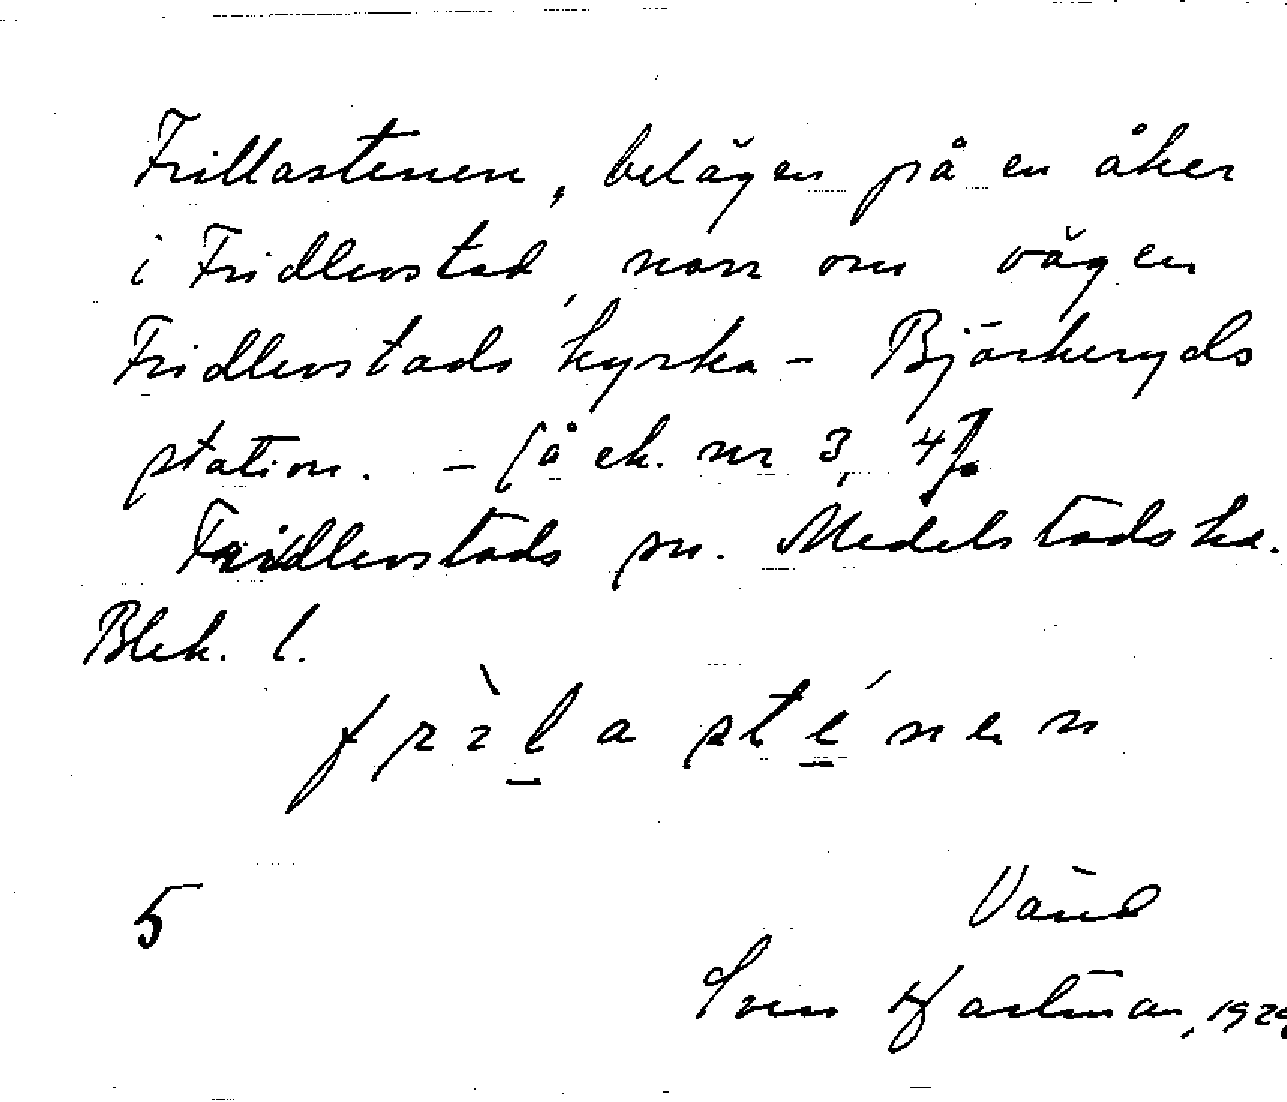 Frillastenen, belägen på en åker
i Fridlevstad, norr om vägen
Fridlevstads kyrka - Björkeryds
station. - På ek. nr 3, 4
Fridlevstads sn. Medelstads hd.
Blek. l.
frìlasténen
5
Vänd
Sven Hartman,